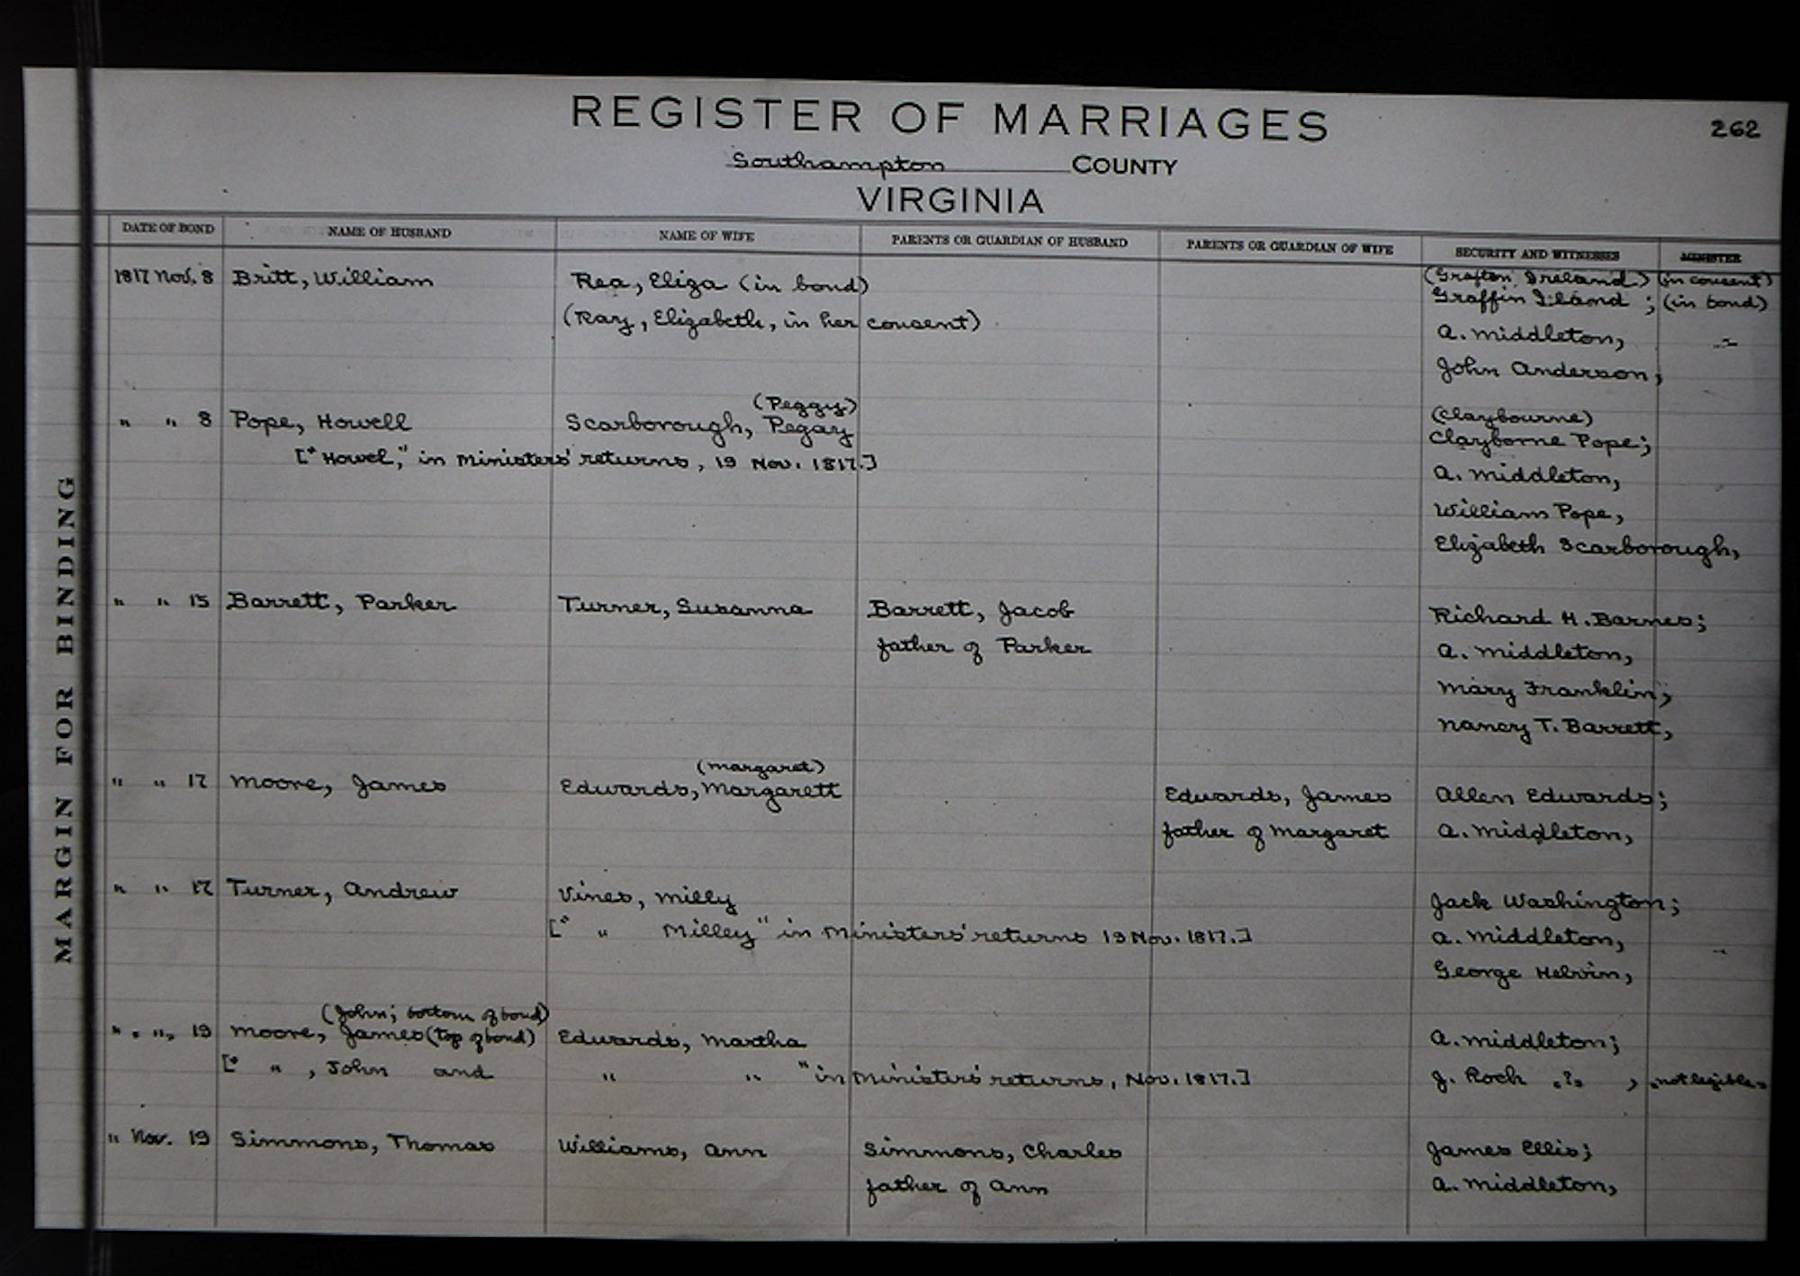 REGISTER OF MARRIAGES
262
Southampton COUNTY
VIRGINIA
MARGIN FOR BINDING
DATE OF BOND NAME OF HUSBAND NAME OF WIFE PARENTS OR GUARDIAN OF HUSBAND PARENTS OR GUARDIAN OF WIFE SECURITY AND WITNESSES MINISTER
(Grafton Ireland) (in consent)
1817 Nov. 8 Britt, William Rea, Eliza (in bond) Graffin Iland; (in bond)
(Ray, Elizabeth, in her consent) A. Middleton,
John Anderson,
(Peggy) (Claybourne)
" " 8 Pope, Howell Scarborough, Pegay Clayborne Pope;
["Howel," in Ministers' returns, 19 Nov. 1817.] A. Middleton,
William Pope,
Elizabeth Scarborough,
" " 15 Barrett, Parker Turner, Susanna Barrett, Jacob Richard H. Barnes;
father of Parker A. Middleton,
Mary Franklin,
Nancy T. Barrett,
(Margaret)
" " 17 Moore, James Edwards, Margarett Edwards, James Allen Edwards;
father of Margaret A. Middleton,
" " 17 Turner, Andrew Vines, Milly Jack Washington;
[" " Milley" in Ministers' returns 19 Nov. 1817.] A. Middleton,
George Helvin,
(John; bottom of bond)
" " 19 Moore, James (top of bond) Edwards, Martha A. Middleton;
[" " , John and " " " in Ministers' returns, Nov. 1817.] J. Roch .?. , not legible
" Nov. 19 Simmons, Thomas Williams, Ann Simmons, Charles James Ellis;
father of Ann A. Middleton,